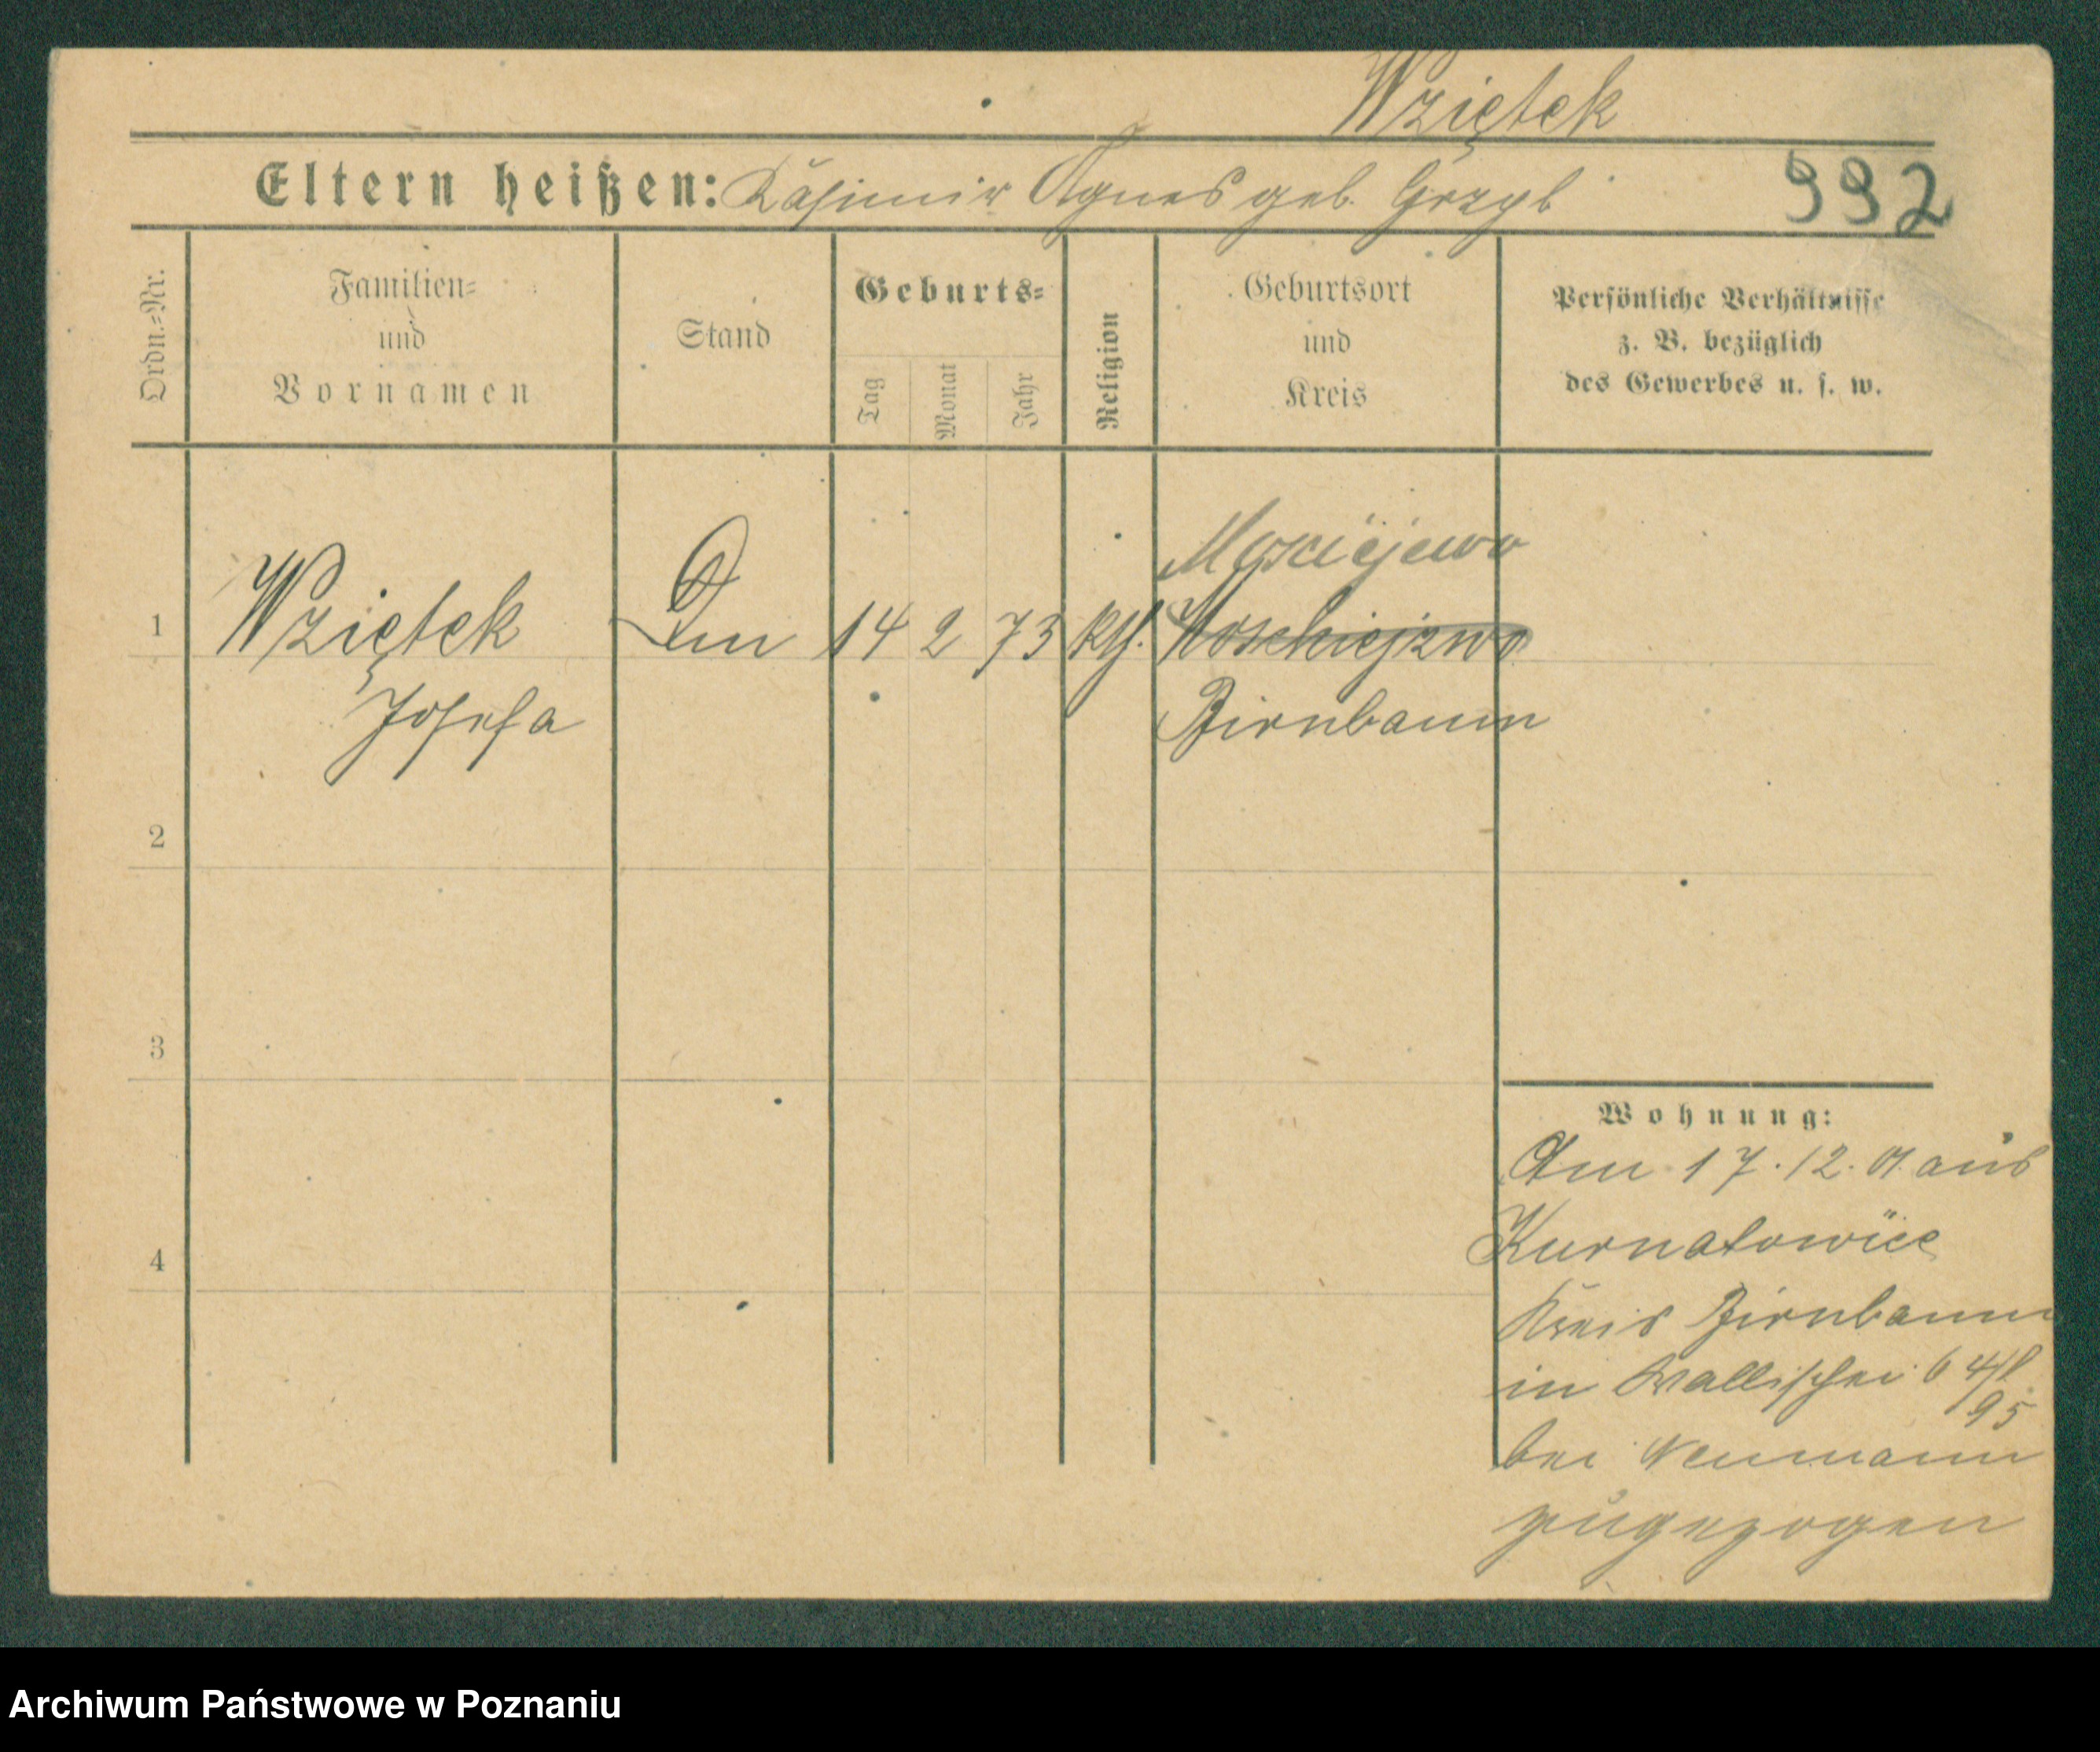 Wziętek
Eltern heißen: Kasimir Agnes geb. Grzyb
992
Ordn.=Nr.
Familien=
und
Vornamen
Stand
Geburts=
Tag
Monat
Jahr
Religion
Geburtsort
und
Kreis
Persönliche Verhältnisse
z. B. bezüglich
des Gewerbes u. s. w.
Mosciejewo
1 Wziętek 14 2 73 kth. Moschiejewo
Josefa Birnbaum
2
3
4
Wohnung:
Am 17.12.01. aus
Kurnatowice
Kreis Birnbaum
in Wallischei 64/I
95
bei Neumann
zugezogen
Archiwum Państwowe w Poznaniu